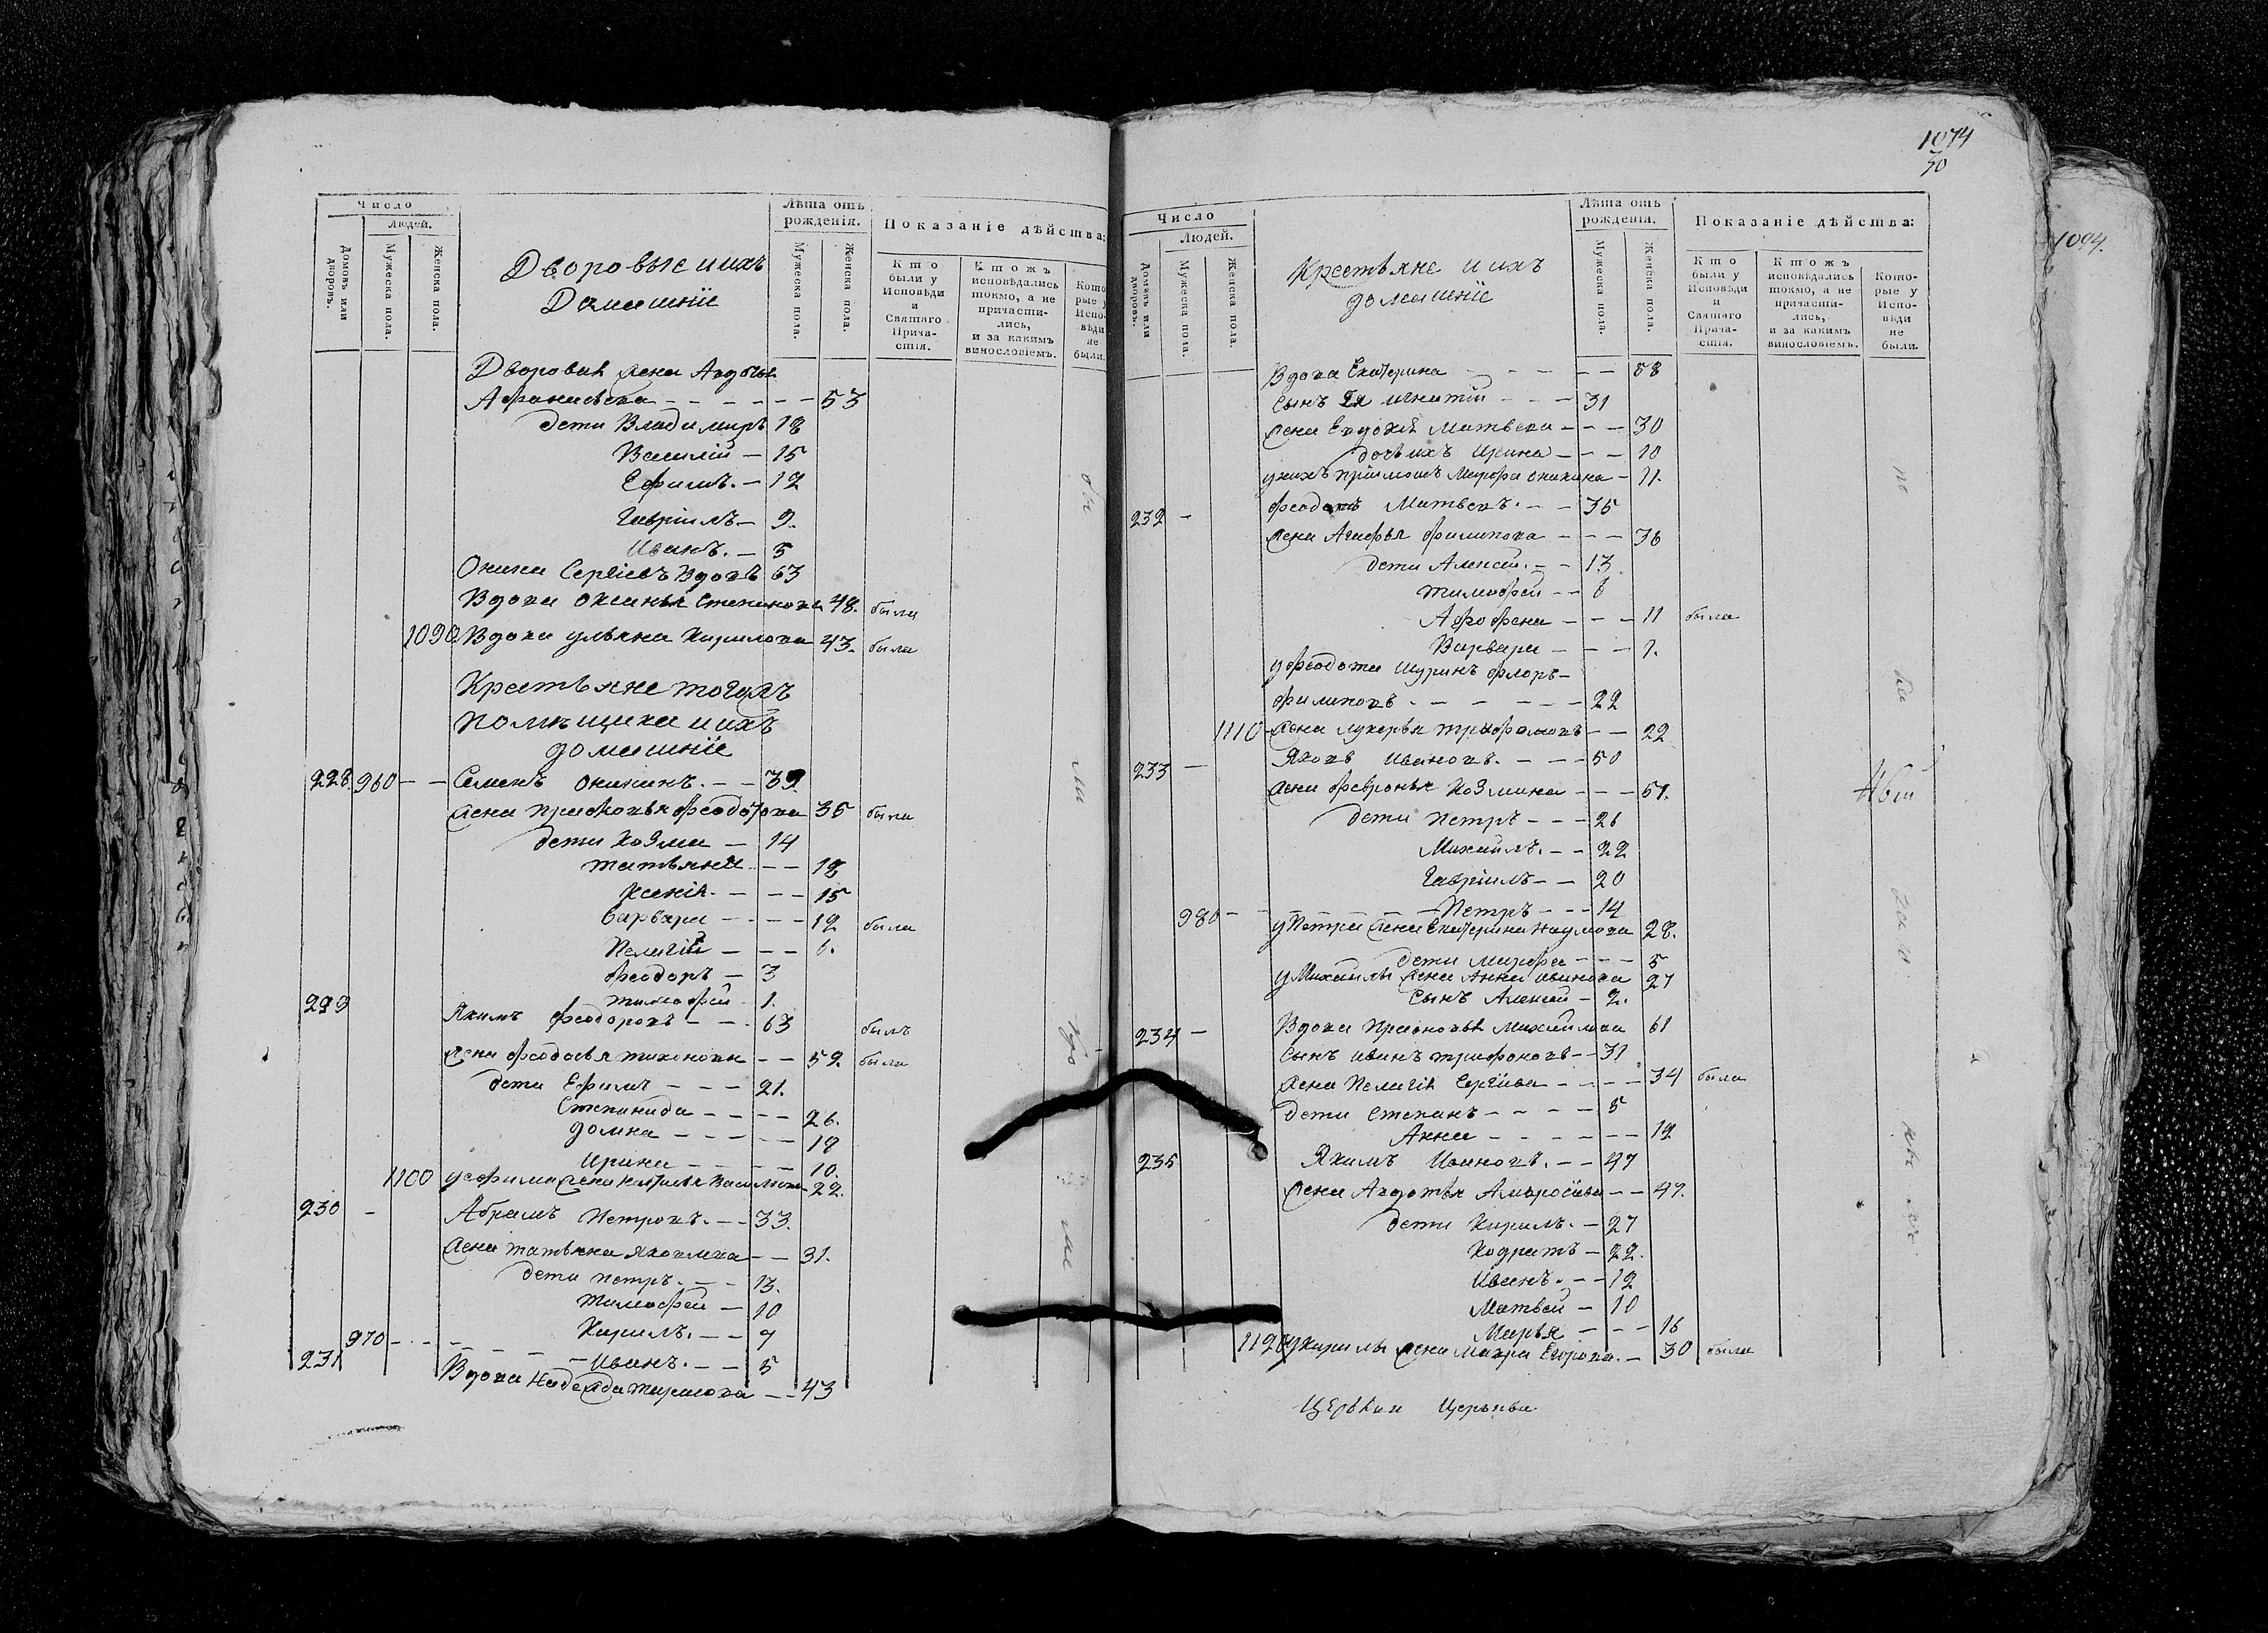 Число
Людей.
Домовъ или дворовъ.
Мужеска пола.
Женска пола.
Дворовые и ихъ
Домашнїе
Лѣта отъ рожденія.
Мужеска пола.
Женска пола.
Показаніе дѣйства:
Кто были у Исповѣди и Святаго Прича-стія.
Ктожъ исповѣдались токмо, а не причасти-лись, и за какимъ винословіемъ.
Кото-рые у Испо-вѣди не были.
Дворовая жена Авдотья
Афанасьева - - - - - - 53
дети Владимиръ 18
Василїй - 15
Ефимъ. - 12
Гаврїилъ - 9.
Иванъ. - 5
Оника Сергїевъ вдовъ 63
Вдова Оксинья Степанова 48. была
1090 Вдова Ульяна Кирилова 43. была
Крестьяне тогожъ
помѣщика и ихъ
домашнїе
228 960 - - Семенъ Оникинъ. - - 39
жена Прасковья Феодотова 35 была
дети Козма - 14
Татьяна - - 18
Ксенїя. - - - 15
Варвара - - - - 12 была
Пелагїя - - - 6.
Феодоръ - 3
Тимофей - 1.
229 Якимъ Феодоровъ - - - 63 былъ
жена Феодосья Тихонова - - 52. была
дети Ефимъ - - - 21.
Степанида - - - - 26.
Домна - - - - - 18
Ирина - - - - 10.
1100 у Ефима жена Наталья Василиева - 22.
230 - Абрамъ Петровъ. - - 33.
жена Татьяна Яковлева - - 31.
дети Петръ. - - - 13.
Тимофей - 10
Кирилъ. - - 7
970 - - - - - - - Иванъ. - - 5
231 Вдова Надежда Тарасова - - 43
1074
30
Число
Людей.
Домовъ или дворовъ.
Мужеска пола.
Женска пола.
Крестьяне и ихъ
домашнїе
Лѣта отъ рожденія.
Мужеска пола.
Женска пола.
Показаніе дѣйства:
Кто были у Исповѣди и Святаго Прича-стія.
Ктожъ исповѣдались токмо, а не причасти-лись, и за какимъ винословіемъ.
Кото-рые у Испо-вѣди не были.
1094.
Вдова Екатерина - - - - - - 58
сынъ Ея Игнатїй - - - 31
жена Евдокїя Матвеева - - - 30
дочь ихъ Ирина - - - 10
у нихъ прїимошъ Марфа Оникина - 11.
232 - Феодотъ Матвеевъ. - - 35
жена Агафья Филипова - - - 36
дети Алексей. - - 13.
Тимофей - - 6
Афросена - - - 11 была
Варвара - - - 1.
у Феодота шуринъ Флоръ -
Филиповъ - - - - - - 22
1110 жена Лукерья Трифонова - - 22
233 - Яковъ Ивановъ. - - - 50
жена Февронья Козмина - - - 51.
дети Петръ - - - 26
Михаилъ. - - 22
Гаврїилъ - - 20
980 - - - - - - Петръ - - - 14
у Петра жена Екатерина Наумова 28.
дети Марфа - - - 5
у Михаилы жена Анна Иванова 27
сынъ Алексей - 2.
234 - Вдова Прасковья Михаилова 61
сынъ Иванъ Трифоновъ - - 31
жена Пелагїя Сергїева - - - - 34 была
дети Степанъ - - - - 5
Анна - - - - - - - 12
235 Якимъ Ивановъ. - - 47
жена Авдотья Амвросїева - - 47.
дети Кирилъ. - 27
Кодратъ - 22.
Иванъ. - - 12
Матвей - 10
Марья - - - 16
1120 у Кирилы жена Мавра Егорова. - 30 была